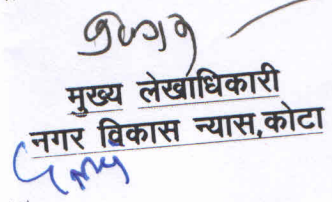 मुख्य लेखाधिकारी
नगर विकास न्यास,कोटा